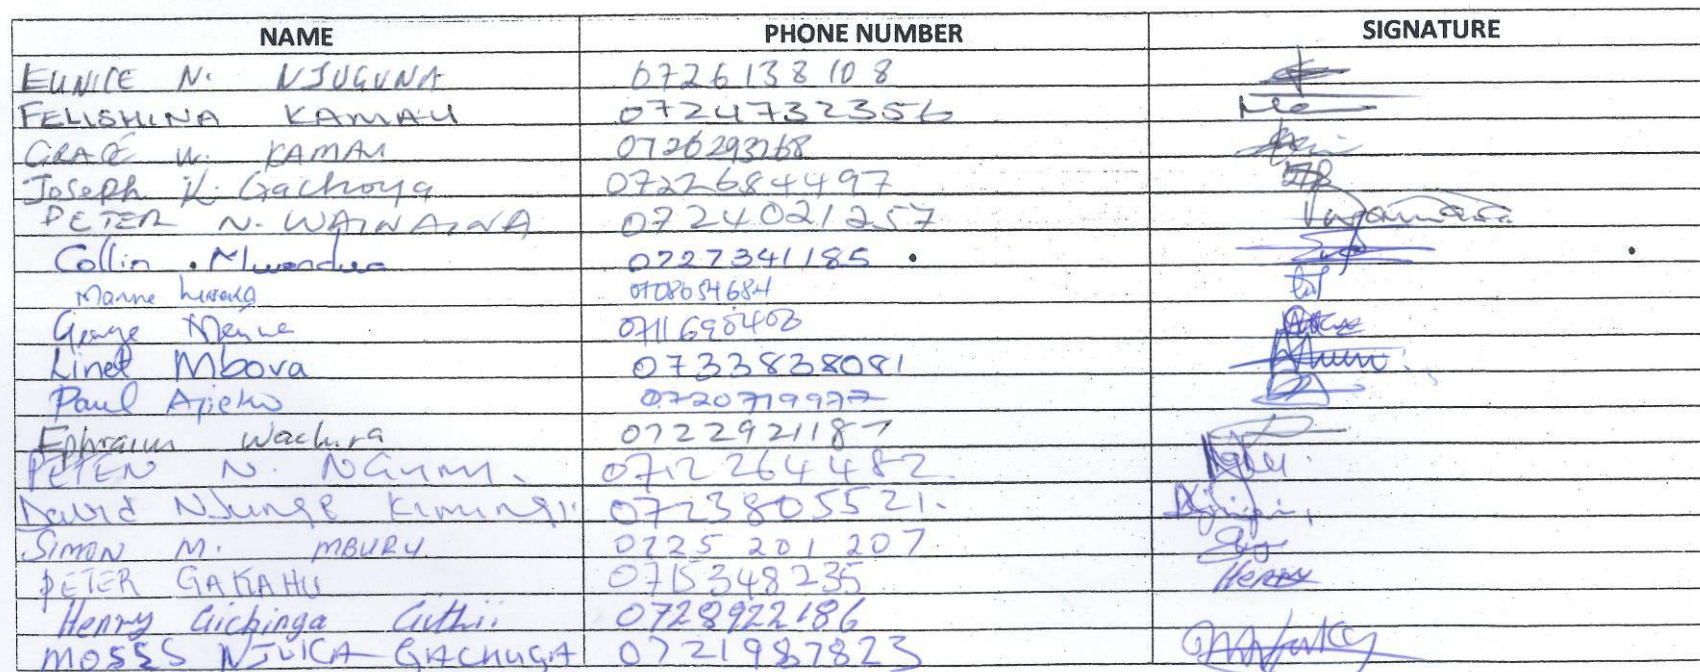 NAME PHONE NUMBER SIGNATURE
EUNICE N. NJUGUNA 0726138108
FELISHINA KAMAU 0724732356
GRACE W. KAMAU 0726293268
Joseph K. Gachoya 0722684497
PETER N. WAINAINA 0724021257
Collin . Mwendwa 0727341185
0708654684
George 0711690403
Linet Mbova 0733838081
Paul 0720719977
Ephraim Wachira 0722921187
PETER N. NGUMI. 0712264482.
David Njunge Kimingi. 0723805521.
SIMON M. MBURU 0725 201 207.
PETER GAKAHU 0715348235 Henry
Henry Gichinga Guthii 0728922186
MOSES NJUCA GACHUGA 0721987823